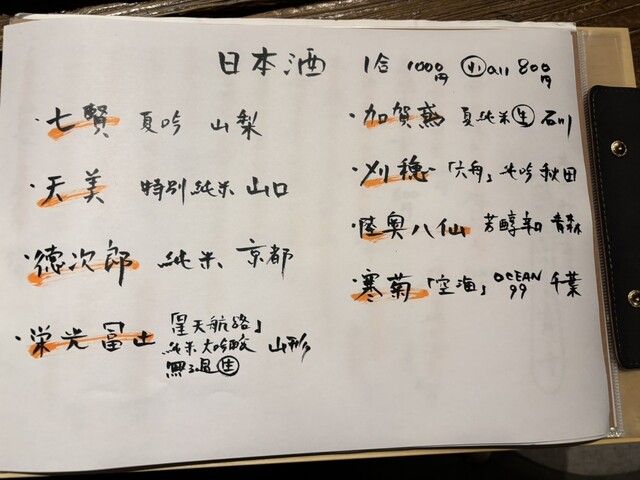 日本酒 1合 1000円 ㊙小 all 800円
・七賢 夏吟 山梨
・天美 特別純米 山口
・徳次郎 純米 京都
・栄光冨士 「星天航路」
純米大吟醸 山形
無ろ過 生
・加賀鳶 夏純米 生 石川
・刈穂 「六舟」 純吟 秋田
・陸奥八仙 芳醇辛 青森
・寒菊 「空海」 OCEAN 99 千葉